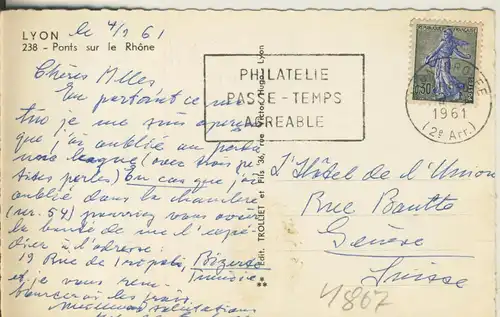 LYON le 4/9 61
238 - Ponts sur le Rhône
Chères Melles
En partant ce ma-
tin je me suis aperçu
que j'ai oublié au
une (avec trois pe-
tites perles) En cas que j'ai
oublié dans la chambre
(nr. 54) pourriez vous avoir
la bonté de me l'expé-
dier à l'adresse:
19 Rue de Tripolis, Bizerte
Tunisie
et je vous rem-
bourserai les frais.
Meilleures salutations
** Edit. TROLLIET et Fils 36, rue Victor-Hugo Lyon
PHILATELIE
PASSE-TEMPS
AGREABLE
REPUBLIQUE FRANÇAISE
0,50
POSTES
1961
(2e Arr.)
L'Hôtel de l'Union
Rue Bautte
Genève
Suisse
41807